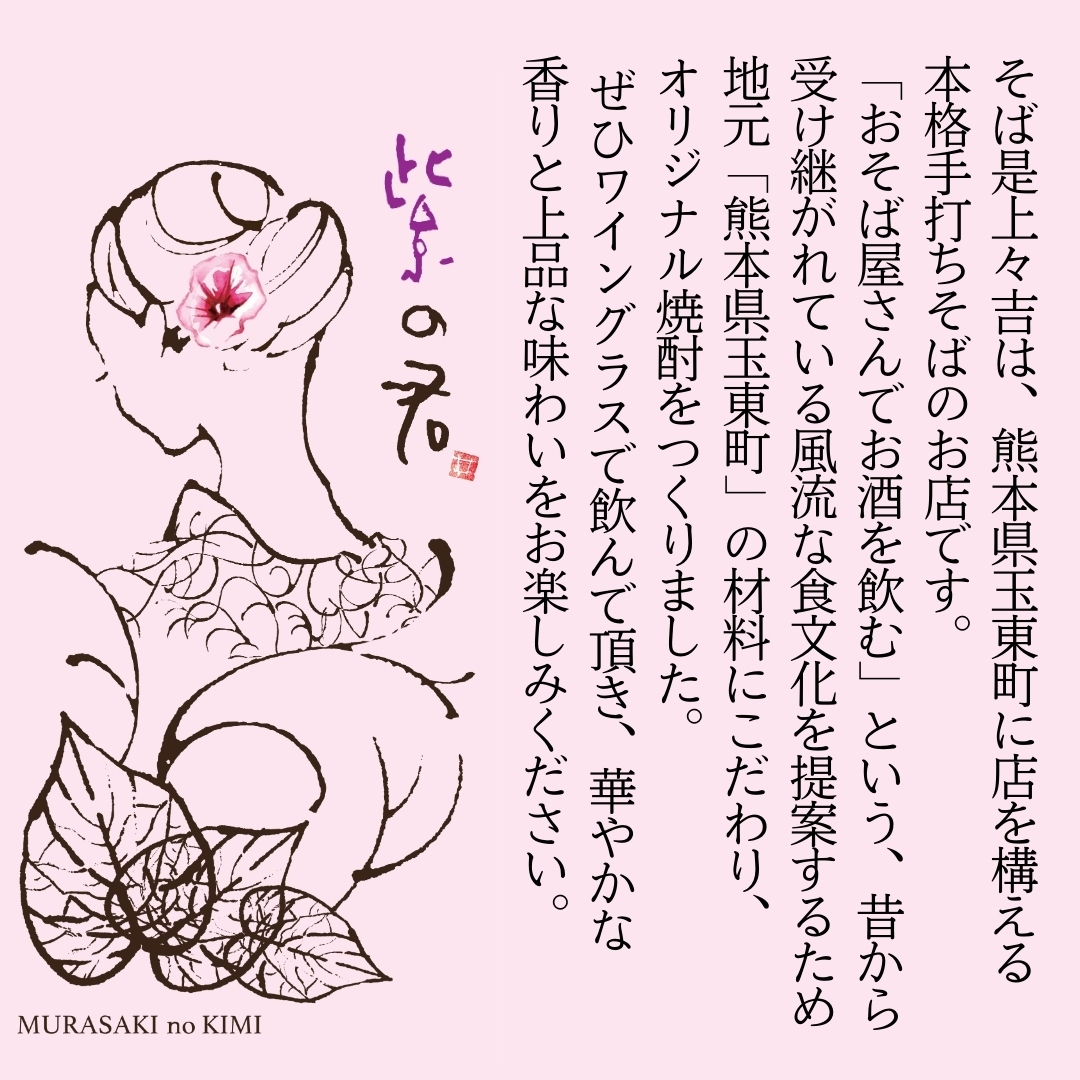 そば是上々吉は、熊本県玉東町に店を構える
本格手打ちそばのお店です。
「おそば屋さんでお酒を飲む」という、昔から
受け継がれている風流な食文化を提案するため
地元「熊本県玉東町」の材料にこだわり、
オリジナル焼酎をつくりました。
ぜひワイングラスで飲んで頂き、華やかな
香りと上品な味わいをお楽しみください。
紫の君
MURASAKI no KIMI